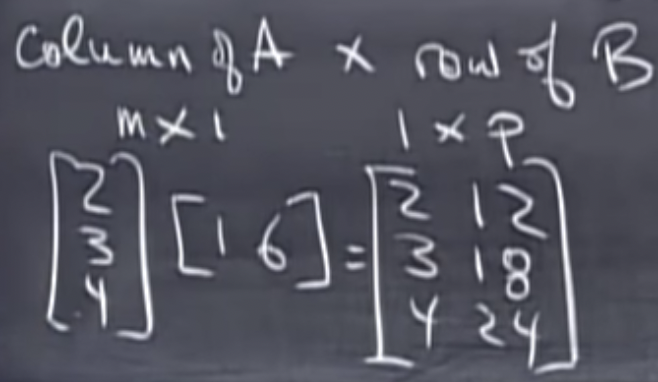 Column of A × row of B
m × 1 1 × p
[2 3 4] [1 6] = [2 12
3 18
4 24]